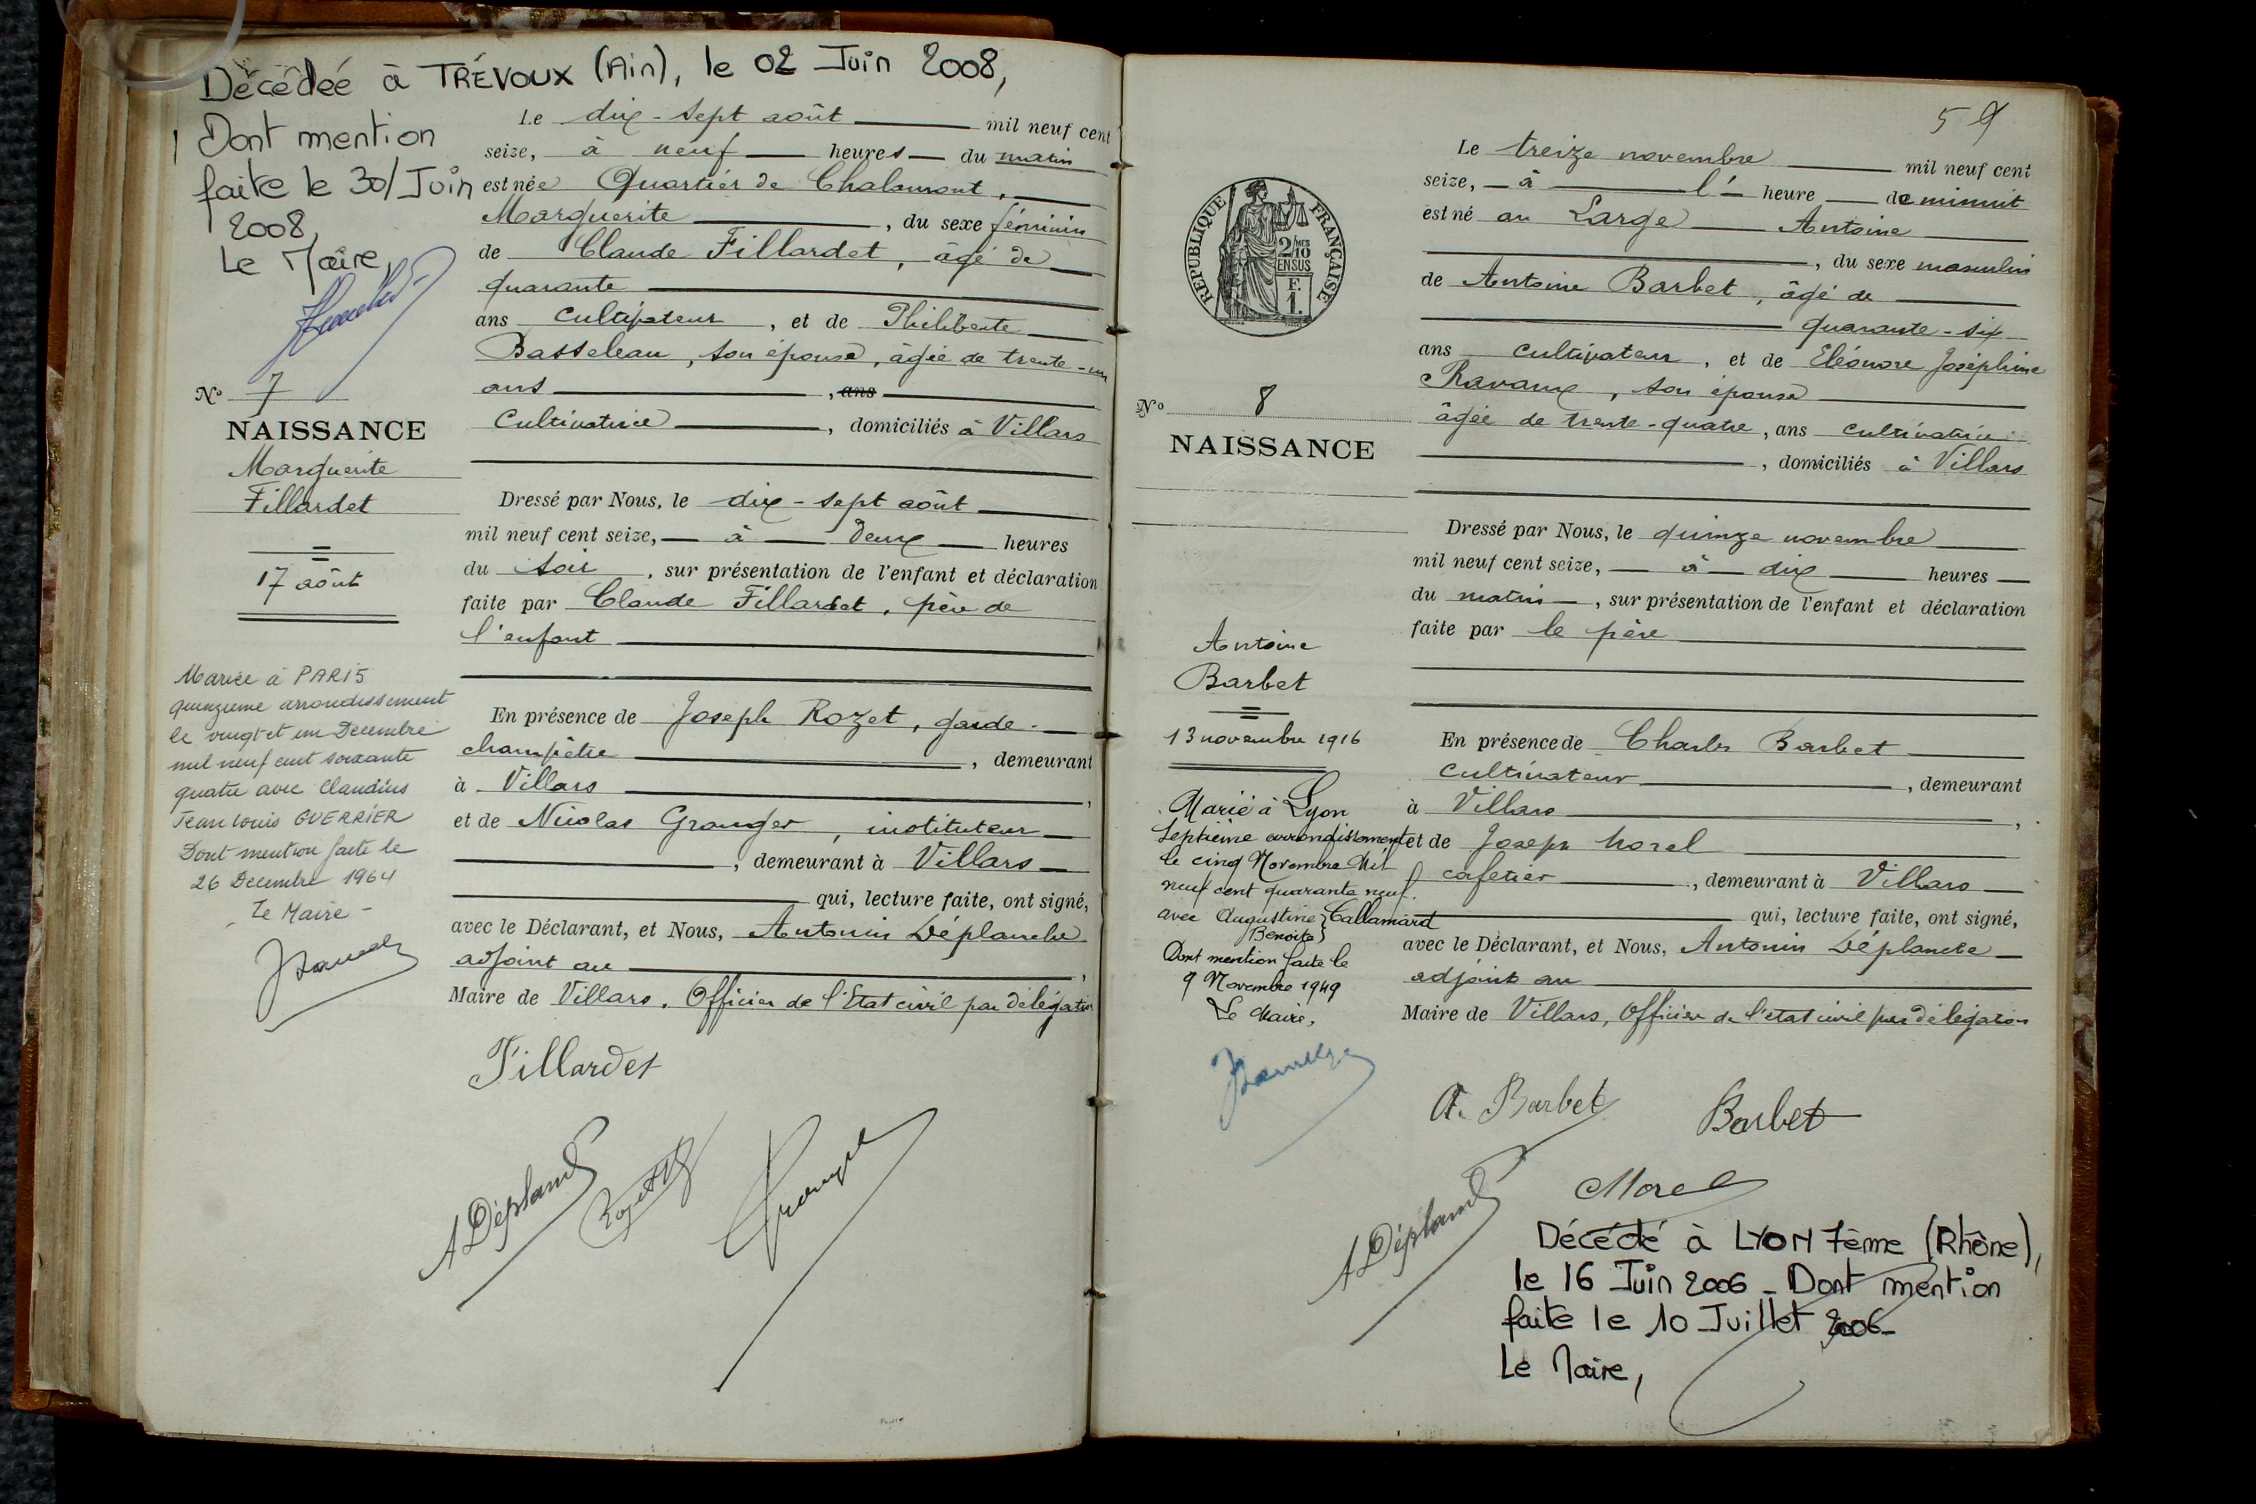 Décédée à TRÉVOUX (Ain), le 02 Juin 2008,
Dont mention
faite le 30 Juin
2008,
Le Maire,
No 7
NAISSANCE
Marguerite
Fillardet
17 août
Mariée à PARIS
quinzième arrondissement
le vingt et un Décembre
mil neuf cent soixante
quatre avec Claudius
Jean Louis GUERRIER
Dont mention faite le
26 Décembre 1964
Le Maire -
Le dix-sept août mil neuf cent
seize, à neuf heures du matin
est née Quartier de Chalamont,
Marguerite, du sexe féminin
de Claude Fillardet, âgé de
quarante
ans cultivateur, et de Philiberte
Basseleau, son épouse, âgée de trente-un
ans, ans
cultivatrice, domiciliés à Villars
Dressé par Nous, le dix-sept août
mil neuf cent seize, à deux heures
du soir, sur présentation de l'enfant et déclaration
faite par Claude Fillardet, père de
l'enfant
En présence de Joseph Rozet, garde-
champêtre, demeurant
à Villars,
et de Nicolas Granger, instituteur
, demeurant à Villars
qui, lecture faite, ont signé,
avec le Déclarant, et Nous, Antonin Déplanche
adjoint au,
Maire de Villars, Officier de l'Etat civil par délégation
Fillardet
A Déplanche
Rozet
Granger
59
RÉPUBLIQUE FRANÇAISE
2/10 MES
EN SUS
F.
1.
No 8
NAISSANCE
Antoine
Barbet
13 novembre 1916
Marié à Lyon
Septième arrondissement
le cinq Novembre Mil
neuf cent quarante neuf
avec Augustine Benoite Tallamard
Dont mention faite le
9 Novembre 1949
Le Maire,
Le treize novembre mil neuf cent
seize, à l' heure de minuit
est né au Large Antoine
, du sexe masculin
de Antoine Barbet, âgé de
quarante-six
ans cultivateur, et de Eléonore Joséphine
Ravaux, son épouse
âgée de trente-quatre, ans cultivatrice
, domiciliés à Villars
Dressé par Nous, le quinze novembre
mil neuf cent seize, à dix heures
du matin, sur présentation de l'enfant et déclaration
faite par le père
En présence de Charles Barbet
cultivateur, demeurant
à Villars,
et de Joseph Morel
cafetier, demeurant à Villars
qui, lecture faite, ont signé,
avec le Déclarant, et Nous, Antonin Déplanche
adjoint au
Maire de Villars, Officier de l'état civil par délégation
A. Barbet
Barbet
Morel
A Déplanche
Décédé à LYON 7ème (Rhône),
le 16 Juin 2006 - Dont mention
faite le 10 Juillet 2006-
Le Maire,